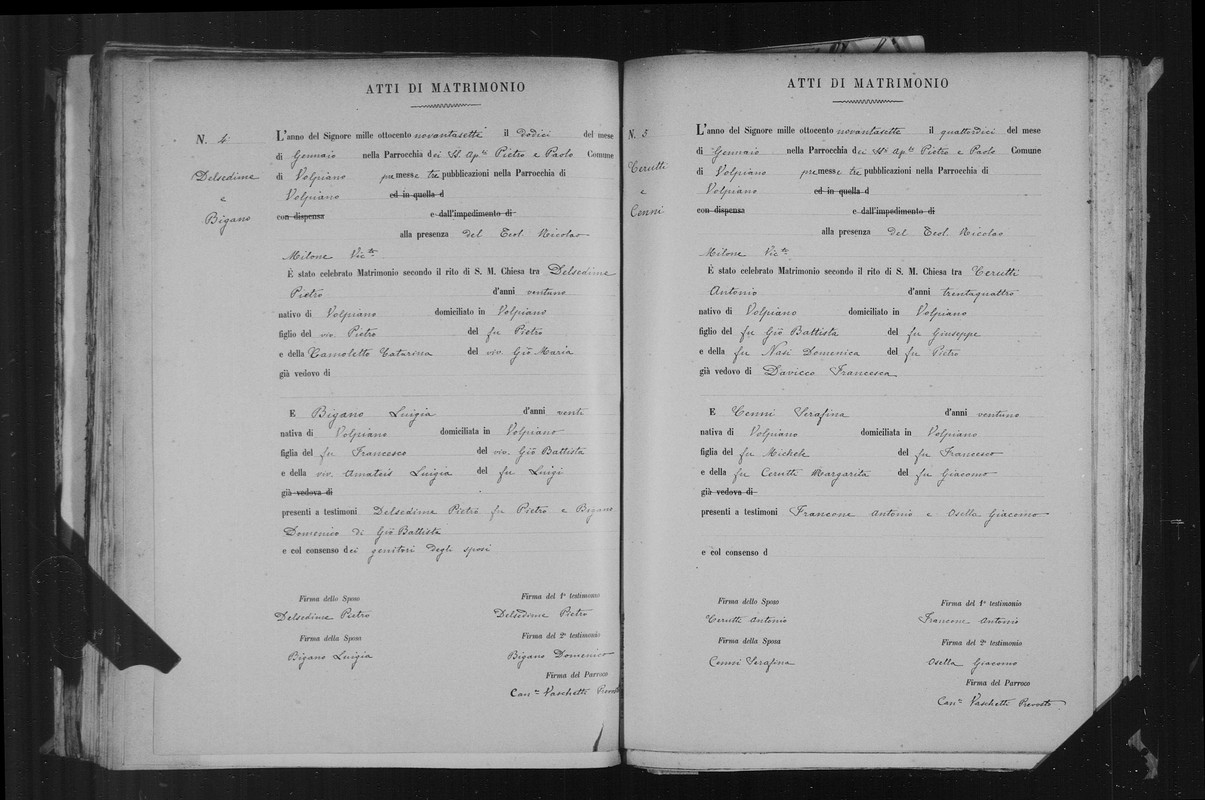 ATTI DI MATRIMONIO
N. 4
Delsedime
e
Bigano
L'anno del Signore mille ottocento novantasette il dodici del mese
di Gennaio nella Parrocchia dei SS. Ap.li Pietro e Paolo Comune
di Volpiano premesse tre pubblicazioni nella Parrocchia di
Volpiano ed in quella d
con dispensa e dall'impedimento di
alla presenza del Teol. Nicolao
Milone Vic.
È stato celebrato Matrimonio secondo il rito di S. M. Chiesa tra Delsedime
Pietro d'anni ventuno
nativo di Volpiano domiciliato in Volpiano
figlio del viv. Pietro del fu Pietro
e della Camoletto Catarina del viv. Giō Maria
già vedovo di
E Bigano Luigia d'anni venti
nativa di Volpiano domiciliata in Volpiano
figlia del fu Francesco del viv. Giō Battista
e della viv. Amateis Luigia del fu Luigi
già vedova di
presenti a testimoni Delsedime Pietro fu Pietro e Bigano
Domenico di Giō Battista
e col consenso dei genitori degli sposi
Firma dello Sposo Firma del 1° testimonio
Delsedime Pietro Delsedime Pietro
Firma della Sposa Firma del 2° testimonio
Bigano Luigia Bigano Domenico
Firma del Parroco
Can.co Vaschetti Prevosto
ATTI DI MATRIMONIO
N. 5
Cerutti
e
Cenni
L'anno del Signore mille ottocento novantasette il quattordici del mese
di Gennaio nella Parrocchia dei SS. Ap.li Pietro e Paolo Comune
di Volpiano premesse tre pubblicazioni nella Parrocchia di
Volpiano ed in quella d
con dispensa e dall'impedimento di
alla presenza del Teol. Nicolao
Milone Vic.
È stato celebrato Matrimonio secondo il rito di S. M. Chiesa tra Cerutti
Antonio d'anni trentaquattro
nativo di Volpiano domiciliato in Volpiano
figlio del fu Giō Battista del fu Giuseppe
e della fu Nasi Domenica del fu Pietro
già vedovo di Davicco Francesca
E Cenni Serafina d'anni ventuno
nativa di Volpiano domiciliata in Volpiano
figlia del fu Michele del fu Francesco
e della fu Cerutti Margarita del fu Giacomo
già vedova di
presenti a testimoni Francone Antonio e Osella Giacomo
e col consenso d
Firma dello Sposo Firma del 1° testimonio
Cerutti Antonio Francone Antonio
Firma della Sposa Firma del 2° testimonio
Cenni Serafina Osella Giacomo
Firma del Parroco
Can.co Vaschetti Prevosto